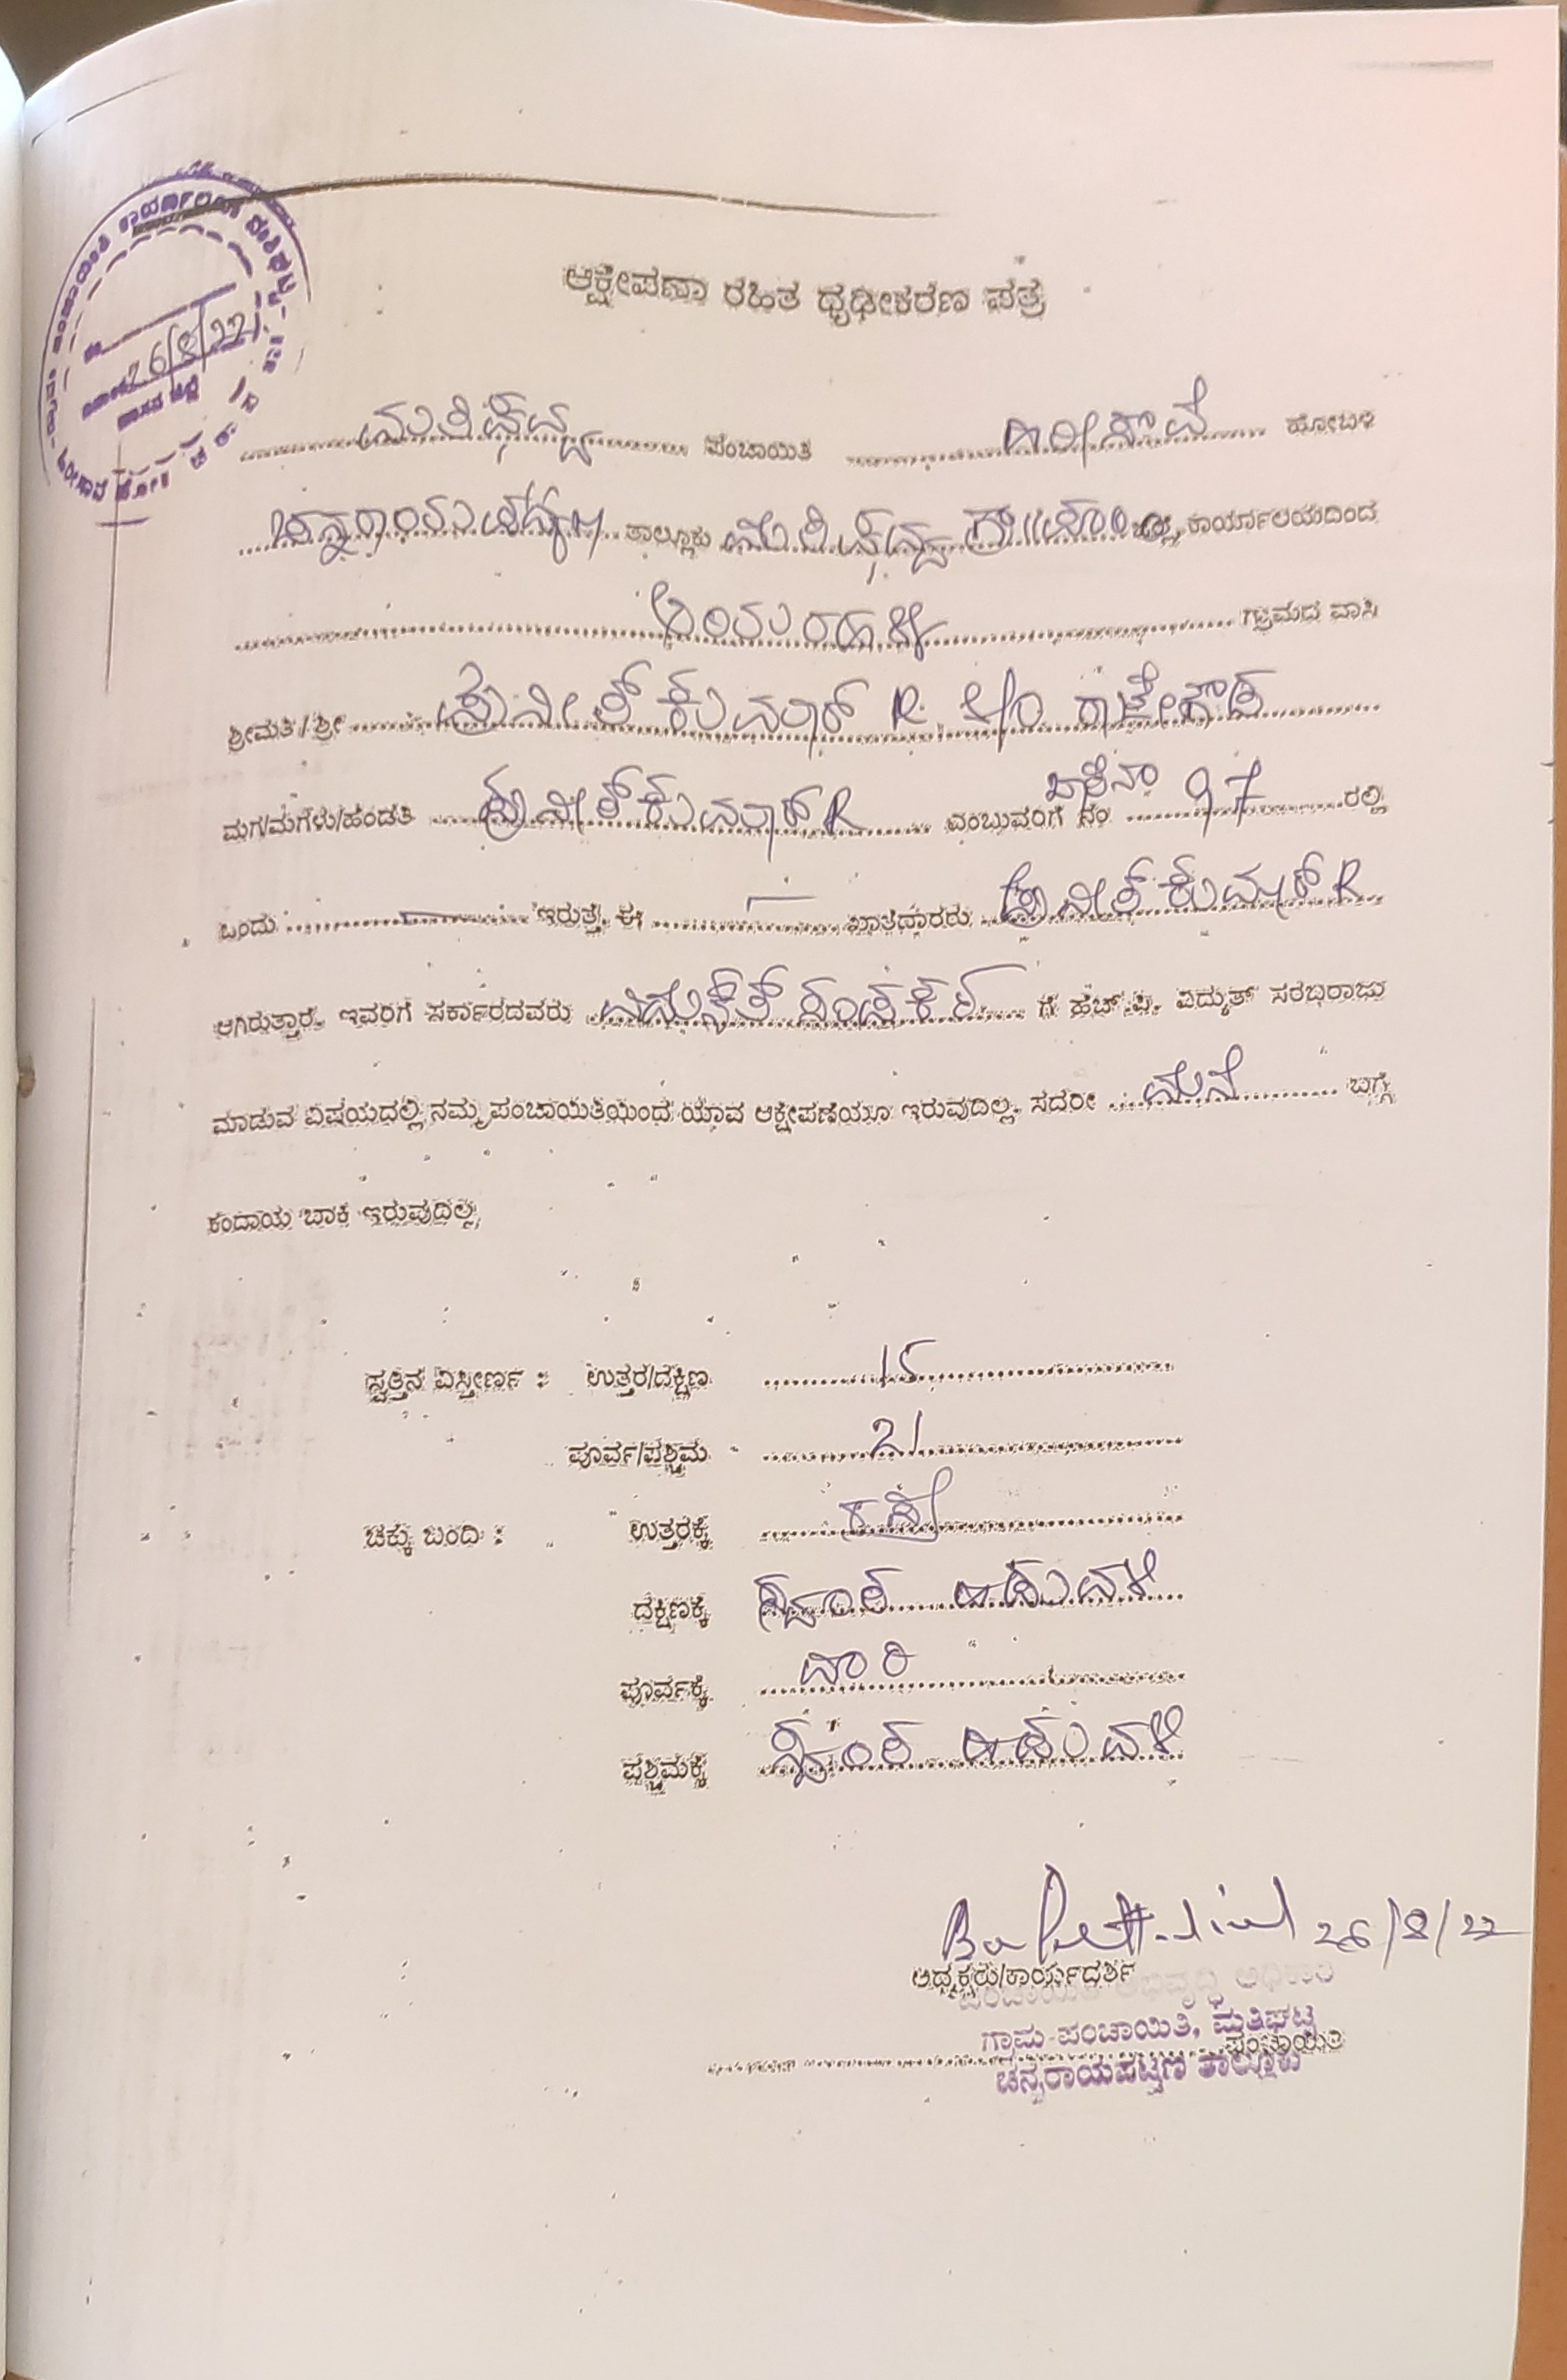 ಆಕ್ಷೇಪಣಾ ರಹಿತ ಧೃಢೀಕರಣ ಪತ್ರ
26/8/22
ಮತಿಘಟ್ಟ ಪಂಚಾಯಿತಿ ಹಿರೀಸಾವೆ ಹೋಬಳಿ
ಚನ್ನರಾಯಪಟ್ಟಣ ತಾಲ್ಲೂಕು ಮತಿಘಟ್ಟ ಗ್ರಾ॥ಪಂ॥ ಕಾರ್ಯಾಲಯದಿಂದ
ಗ್ರಾಮದ ವಾಸಿ
ಶ್ರೀಮತಿ/ಶ್ರೀ ಪುನೀತ್ ಕುಮಾರ್ R. S/o ರಾಜೇಗೌಡ
ಮಗ/ಮಗಳು/ಹೆಂಡತಿ ಪುನೀತ್ ಕುಮಾರ್ R ಎಂಬುವರಿಗೆ ನಂ 97 ರಲ್ಲಿ
ಒಂದು — ಇರುತ್ತೆ. ಈ — ಖಾತೆದಾರರು ಪುನೀತ್ ಕುಮಾರ್ R
ಆಗಿರುತ್ತಾರೆ. ಇವರಿಗೆ ಸರ್ಕಾರದವರು ವಿದ್ಯುತ್ ಸಂಪರ್ಕ ಗೆ ಹೆಚ್.ಪಿ. ವಿದ್ಯುತ್ ಸರಬರಾಜು
ಮಾಡುವ ವಿಷಯದಲ್ಲಿ ನಮ್ಮ ಪಂಚಾಯಿತಿಯಿಂದ ಯಾವ ಆಕ್ಷೇಪಣೆಯೂ ಇರುವುದಿಲ್ಲ. ಸದರೀ ಮನೆ ಬಗ್ಗೆ
ಕಂದಾಯ ಬಾಕಿ ಇರುವುದಿಲ್ಲ
ಸ್ವತ್ತಿನ ವಿಸ್ತೀರ್ಣ : ಉತ್ತರ/ದಕ್ಷಿಣ 15
ಪೂರ್ವ/ಪಶ್ಚಿಮ 21
ಚಕ್ಕು ಬಂದಿ : ಉತ್ತರಕ್ಕೆ ರಸ್ತೆ
ದಕ್ಷಿಣಕ್ಕೆ ಸ್ವಂತ ಹಿಡುವಳಿ
ಪೂರ್ವಕ್ಕೆ ದಾರಿ
ಪಶ್ಚಿಮಕ್ಕೆ ಸ್ವಂತ ಹಿಡುವಳಿ
26/8/22
ಅಧ್ಯಕ್ಷರು/ಕಾರ್ಯದರ್ಶಿ
ಪಂಚಾಯಿತಿ ಅಭಿವೃದ್ಧಿ ಅಧಿಕಾರಿ
ಗ್ರಾಮ ಪಂಚಾಯಿತಿ, ಮತಿಘಟ್ಟ
ಪಂಚಾಯಿತಿ
ಚನ್ನರಾಯಪಟ್ಟಣ ತಾಲ್ಲೂಕು